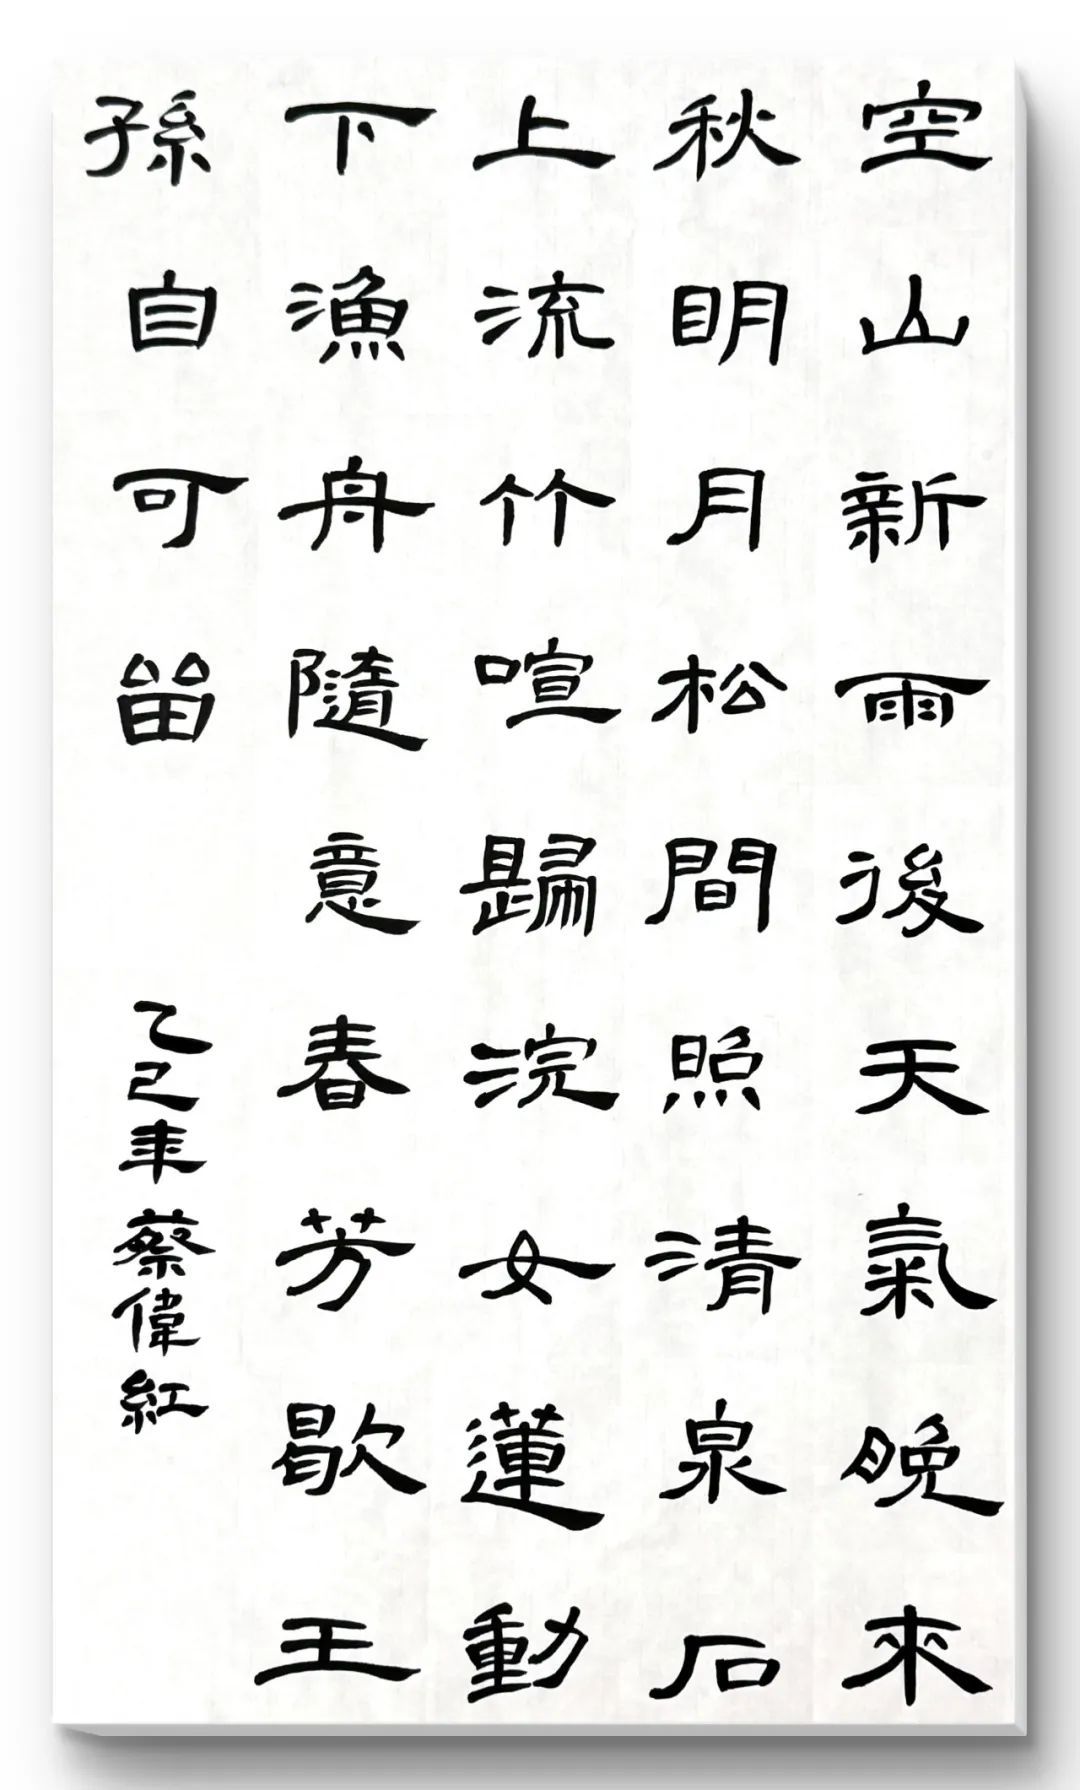 空山新雨後天氣晚來
秋明月松間照清泉石
上流竹喧歸浣女蓮動
下漁舟隨意春芳歇王
孫自可留
乙巳年蔡偉紅